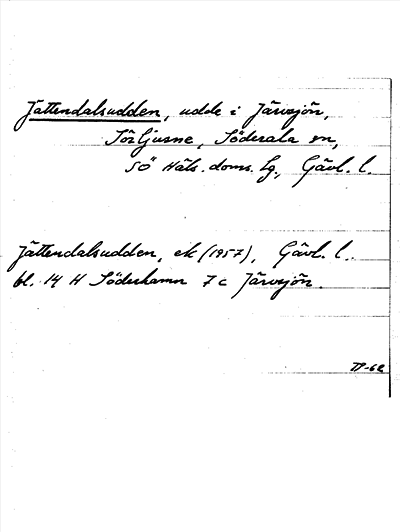 Jättendalsudden, udde i Järvsjön,
Sör Ljusne, Söderala sn,
SÖ Häls. doms. lg., Gävl. l.
Jättendalsudden, ek (1957), Gävl. l.
bl. 14 H Söderhamn 7 c Järvsjön.